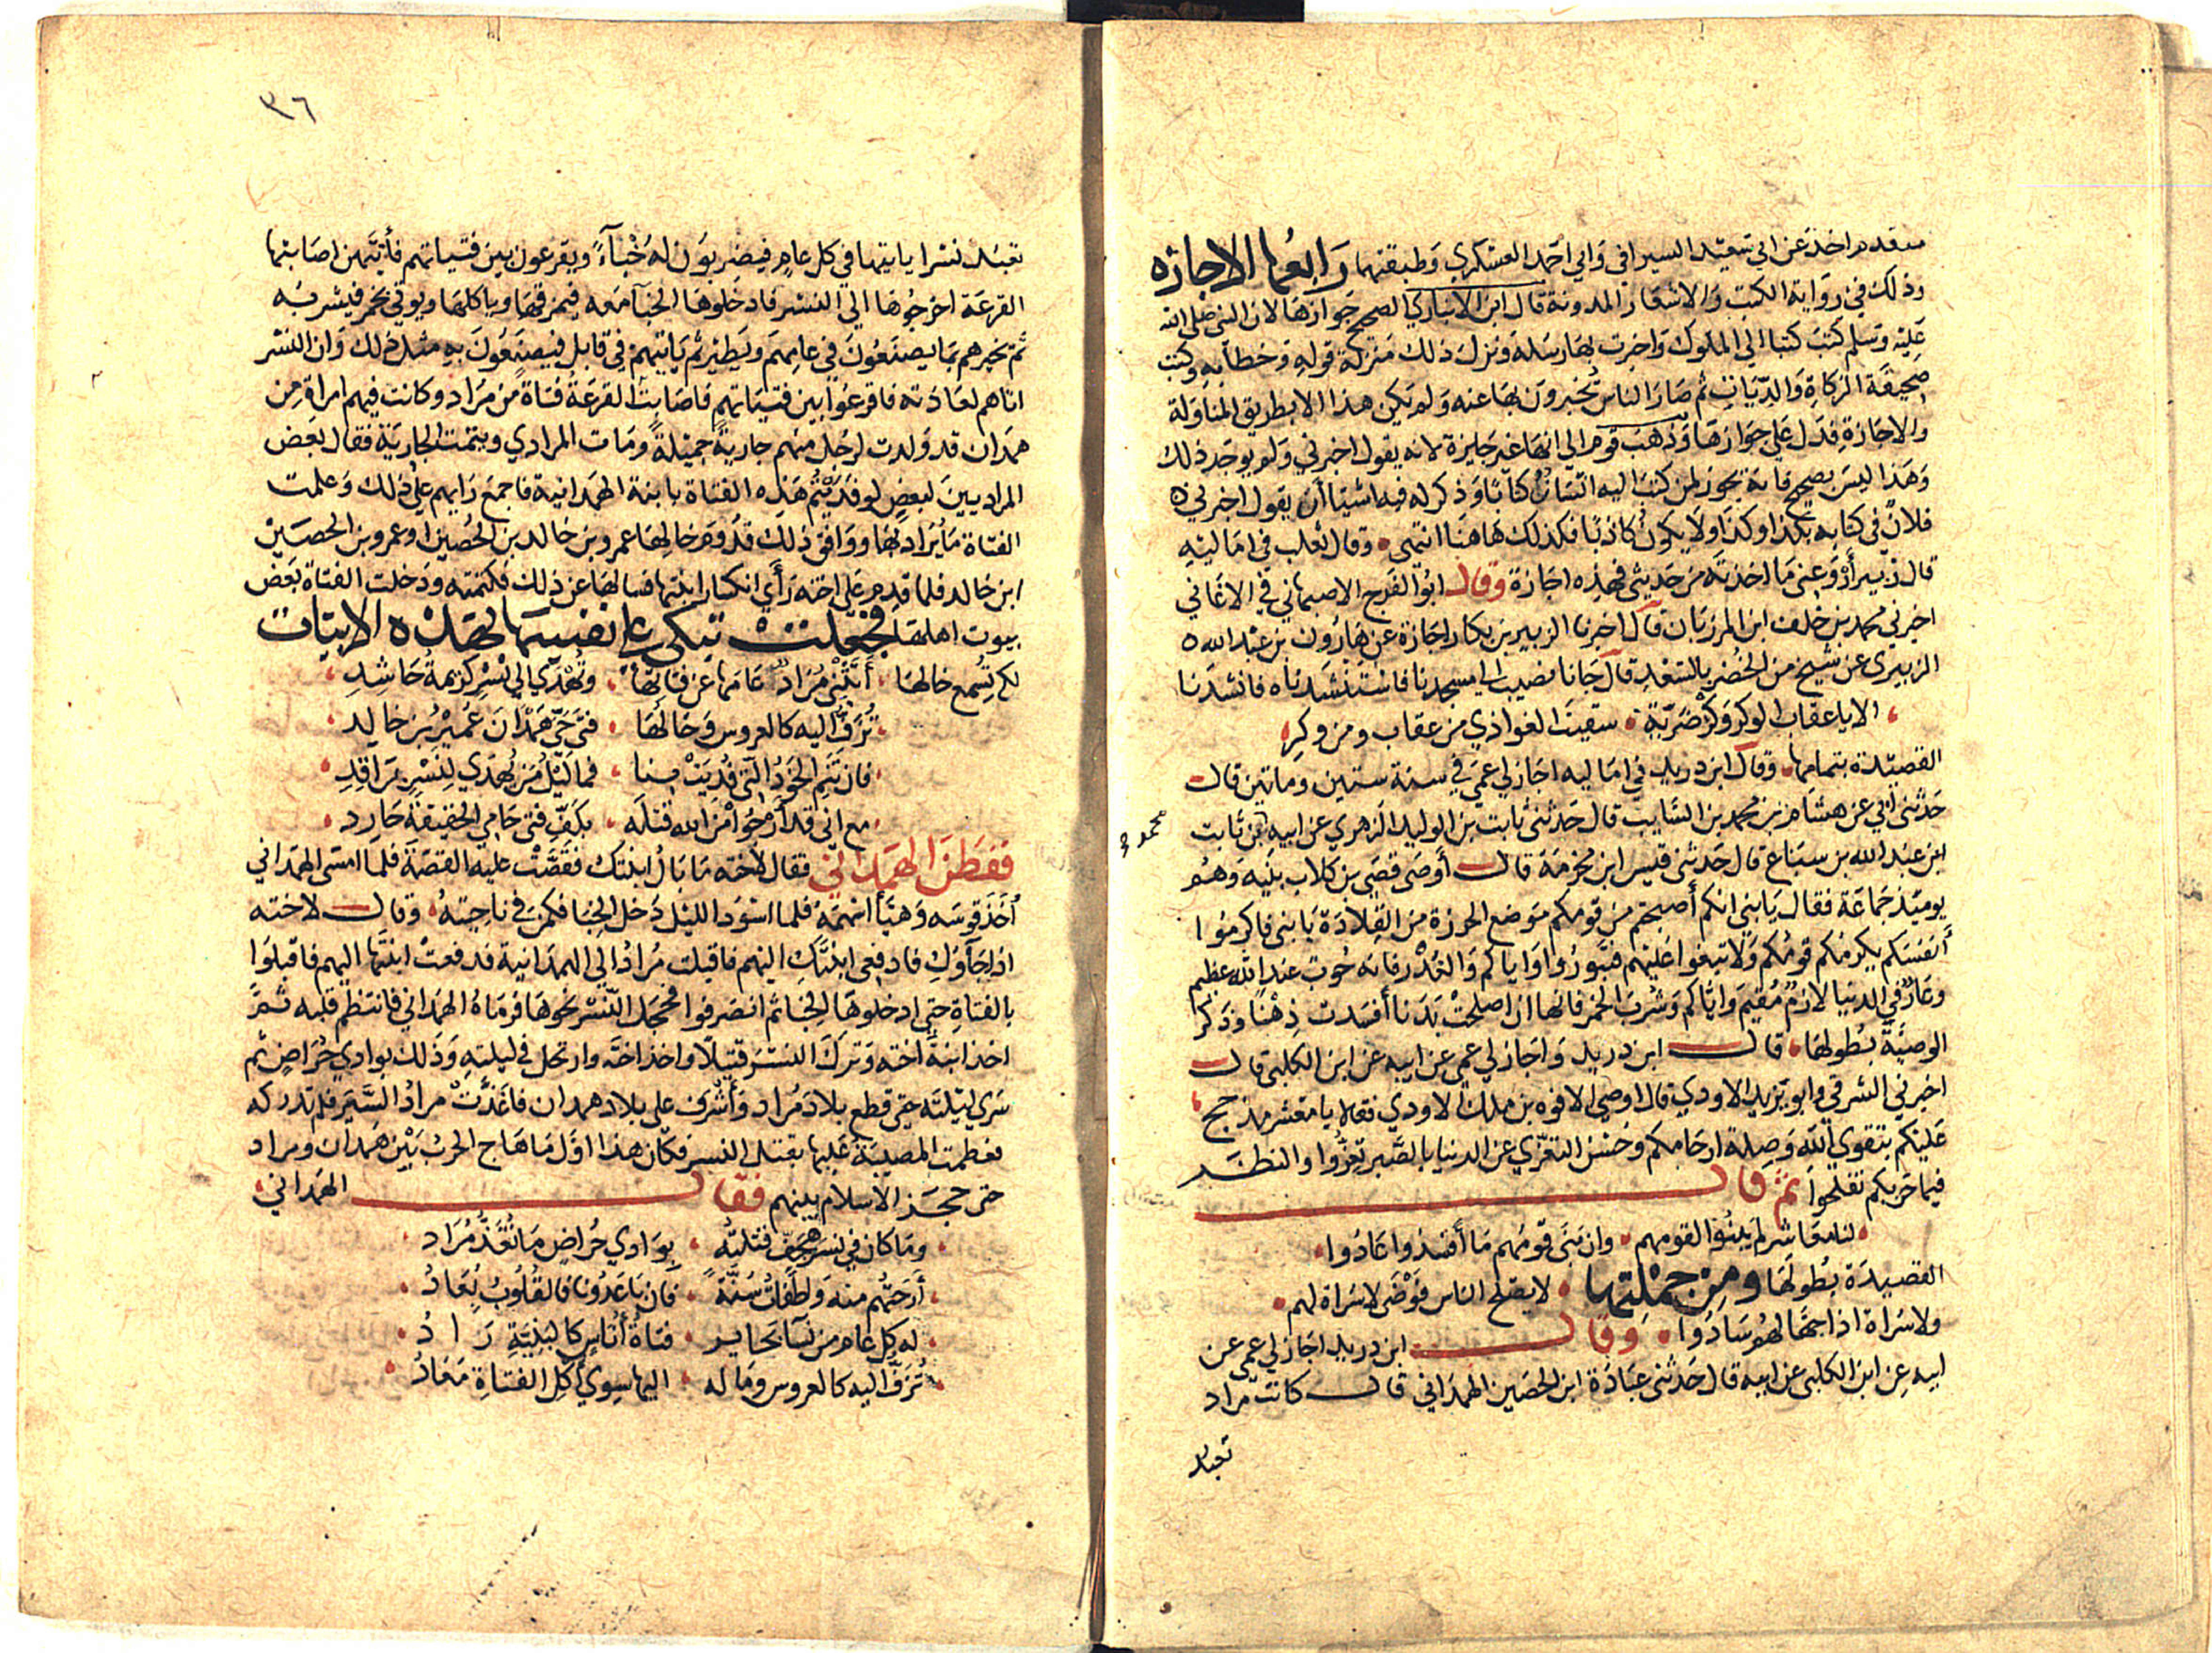 متقدم اخذ عن ابي سعيد السيرافي وابي احمد العسكري وطبقتهما رابعها الاجازه
وذلك في رواية الكتب والاشعار المدونة قال ابن الانباري الصحيح جوازها لان النبي صلى الله
عليه وسلم كتب كتبا الي الملوك واخبرت بها رسله ونزل ذلك منزلة قوله وخطابه وكتب
صحيفة الزكاة والديات ثم صار الناس تخبرون بها عنه ولم يكن هذا الا بطريق المناولة
والاجازة فدل على جوازها وذهب قوم الي انها غير جايزة لانه يقول اخبرني ولم يوجد ذلك
وهذا ليس بصحيح فانه يجوز لمن كتب اليه انسان كتابا وذكر له فيه اشيا أن يقول اخبرني
فلان في كتابه بكذا وكذا ولا يكون كاذبا فكذلك هاهنا انتهى وقال ثعلب في اماليه
قال زبير أرو عني ما اخذته من حديثي فهذه اجازة وقال ابو الفرج الاصبهاني في الاغاني
اخبرني محمد بن خلف ابن المرزبان قال اخبرنا الزبير بن بكار اجازة عن هارون بن عبد الله
الزبيري عن شيخ من الخضر بالسغد قال جانا نصيب الي مسجدنا فاستنشدناه فانشدنا
الا يا عقاب الوكر وكر ضرية سقيت الغواذي من عقاب ومن وكر
القصيدة بتمامها وقال ابن دريد في اماليه اجاز لي عمي في سنة ستين وماتين قال
حدثني ابي عن هشام بن محمد بن السايب قال حدثني ثابت بن الوليد الزهري عن ابيه عن ثابت
محمد
ابن عبد الله بن سباع قال حدثني قيس ابن مخرمة قال أوصى قصي بن كلاب بنيه وهو
يوميذ جماعة فقال يا بني انكم أصبحتم من قومكم موضع الخرزة من القلادة يا بني فاكرموا
أنفسكم يكرمكم قومكم ولا تبغوا عليهم فتبوروا واياكم والغدر فانه حوب عند الله عظيم
وعار في الدنيا لازم مقيم واياكم وشرب الخمر فانها ان اصلحت بدنا أفسدت ذهنا وذكر
الوصية بطولها قال ابن دريد واجاز لي عمي عن ابيه عن ابن الكلبي قال
اخبرني الشرقي وابو يزيد الاودي قال اوصى الافوه بن ملك الاودي فقال يا معشر مذحج
عليكم بتقوي الله وصلة ارحامكم وحسن التعزي عن الدنيا بالصبر تعزوا والنظر
فيما حربكم تفلحوا ثم قال
لنا معاشر لم يبنوا لقومهم وان بنى قومهم ما أفسدوا عادوا
القصيدة بطولها ومن جملتها لا يصلح الناس فوضى لا سراة لهم
ولا سراة اذا جهالهم سادوا وقال ابن دريد اجاز لي عمي عن
ابيه عن ابن الكلبي عن ابيه قال حدثني عبادة ابن الحصين الهمداني قال كانت مراد
تعبد
٣٦
تعبد نسرا ياتيها في كل عام فيضربون له خباء ويقرعون بين فتياتهم فأيتهن اصابتها
القرعة اخرجوها الي النسر فادخلوها الخبا معه فيمزقها وياكلها ويوتي بخمر فيشربه
ثم يخبرهم بما يصنعون في عامهم ويطير ثم ياتيهم في قابل فيصنعون به مثل ذلك وان النسر
اتاهم لعادته فاقرعوا بين فتياتهم فاصابت القرعة فتاة من مراد وكانت فيهم امراة من
همدان قد ولدت لرجل منهم جارية جميلة ومات المرادي ويتمت الجارية فقال بعض
المراديين لبعض لو فديتم هذه الفتاة بابنة الهمدانية فاجمع رايهم علي ذلك وعلمت
الفتاة ما يراد بها ووافق ذلك قدوم خالها عمرو بن خالد بن الحصين او عمرو بن الحصين
ابن خالد فلما قدم على اخته رأي انكسار ابنتها فسالها عن ذلك فكتمته ودخلت الفتاة بعض
بيوت اهلها فجعلت تبكي علي نفسها بهذه الابيات
لكي تسمع خالها أتثني مراد عامها عن فتاتها وتهدي الي نسر كريمة حاشد
تزف اليه كالعروس وخالها فتي حي همدان عمير بن خالد
فان تنم الخود التي فديت بنا فما ليل من يهدي لنسر براقد
مع اني قد أرجوا من الله قتله بكف فتى حامي الحقيقة حارد
ففطن الهمداني فقال لاخته ما بال ابنتك فقصت عليه القصة فلما امسى الهمداني
أخذ قوسه وهيأ اسهمه فلما اسود الليل دخل الخبا فكمن في ناحيته وقال لاخته
اذا جآوك فادفعي ابنتك اليهم فاقبلت مراد الي الهمدانية فدفعت ابنتها اليهم فاقبلوا
بالفتاة حتى ادخلوها الخبا ثم انصرفوا فحجل النسر نحوها فرماه الهمداني فانتظم قلبه ثم
اخذ ابنة اخته وترك النسر قتيلا واخذ اخته وارتحل في ليلته وذلك بوادي حراض ثم
سري ليلته حتى قطع بلاد مراد وأشرف علي بلاد همدان فاغذت مراد السير فلم تدركه
فعظمت المصيبة عليها بقتل النسر فكان هذا اول ما هاج الحرب بين همدان ومراد
حتى حجز الاسلام بينهم فقال الهمداني
وما كان في نسر هجف قتلته بوادي حراض ما تغذ مراد
أرحتهم منه واطفات سنة فان باعدونا فالقلوب بعاد
له كل عام من نسا مخاير فتاة أناس كالبنية زاد
تزف اليه كالعروس وماله اليها سوي أكل الفتاة معاد